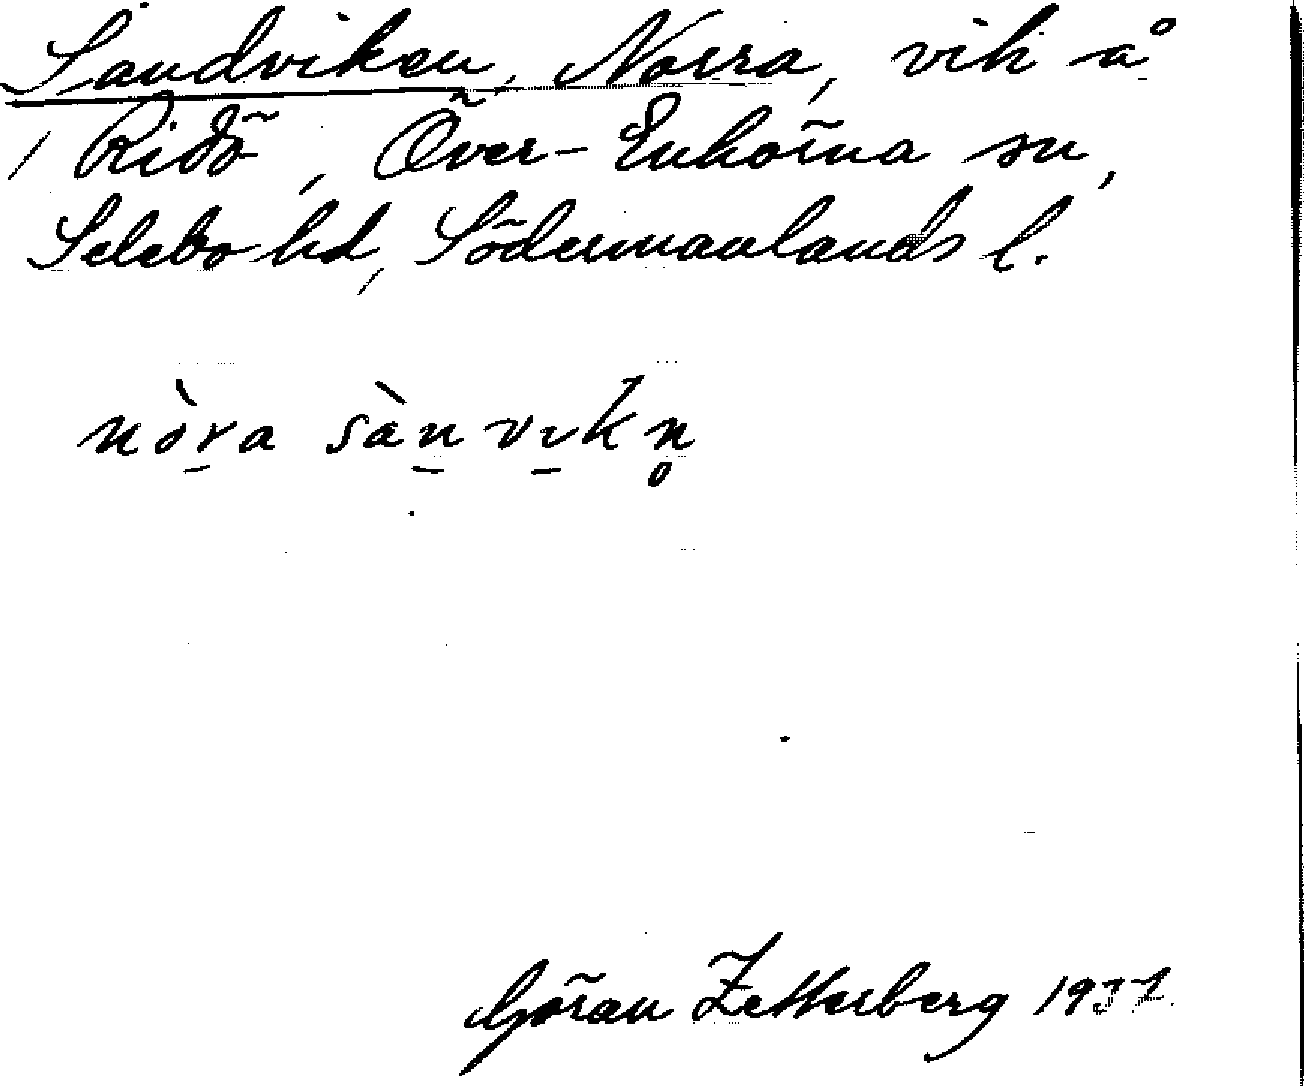 Sandviken, Norra, vik å
/ Ridö, Över-Enhörna sn,
Selebo hd, Södermanlands l.
nòra sànvikn̥
Göran Zetterberg 1937.